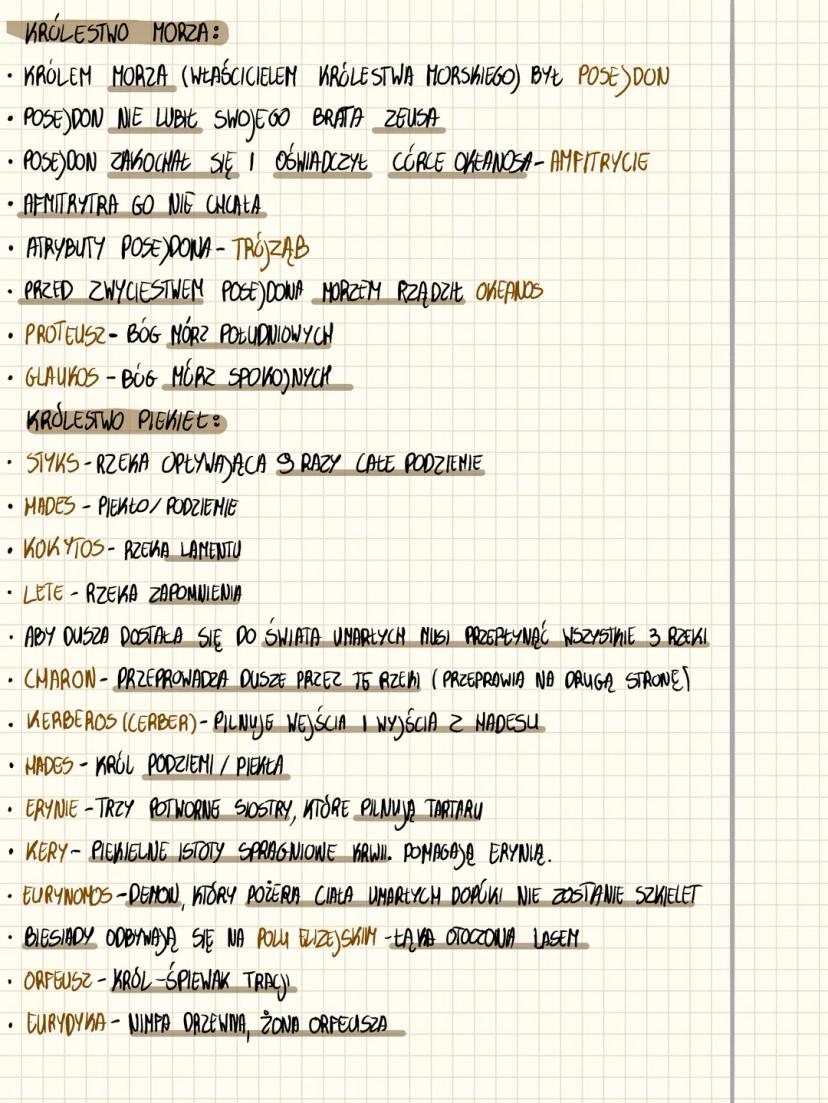 KRÓLESTWO MORZA:
• KRÓLEM MORZA (WŁAŚCICIELEM KRÓLESTWA MORSKIEGO) BYŁ POSEJDON
• POSEJDON NIE LUBIŁ SWOJEGO BRATA ZEUSA
• POSEJDON ZAKOCHAŁ SIĘ I OŚWIADCZYŁ CÓRCE OKEANOSA - AMFITRYCIE
• AFMITRYTRA GO NIE CHCAŁA
• ATRYBUTY POSEJDONA - TRÓJZĄB
• PRZED ZWYCIESTWEM POSEJDONA MORZEM RZĄDZIŁ OKEANOS
• PROTEUSZ - BÓG MÓRZ POŁUDNIOWYCH
• GLAUKOS - BÓG MÓRZ SPOKOJNYCH
KRÓLESTWO PIEKIEŁ:
• STYKS - RZEKA OPŁYWAJĄCA 9 RAZY CAŁE PODZIEMIE
• HADES - PIEKŁO / PODZIEMIE
• KOKYTOS - RZEKA LAMENTU
• LETE - RZEKA ZAPOMNIENIA
• ABY DUSZA DOSTAŁA SIĘ DO ŚWIATA UMARŁYCH MUSI PRZEPŁYNĄĆ WSZYSTKIE 3 RZEKI
• CHARON - PRZEPROWADZA DUSZE PRZEZ TE RZEKI (PRZEPRAWIA NA DRUGĄ STRONĘ)
• KERBEROS (CERBER) - PILNUJE WEJŚCIA I WYJŚCIA Z HADESU
• HADES - KRÓL PODZIEMI / PIEKŁA
• ERYNIE - TRZY POTWORNE SIOSTRY, KTÓRE PILNUJĄ TARTARU
• KERY - PIEKIELNE ISTOTY SPRAGNIONE KRWII. POMAGAJĄ ERYNIĄ.
• EURYNOMOS - DEMON, KTÓRY POŻERA CIAŁA UMARŁYCH DOPÓKI NIE ZOSTANIE SZKIELET
• BIESIADY ODBYWAJĄ SIĘ NA POLU ELIZEJSKIM - ŁĄKA OTOCZONA LASEM
• ORFEUSZ - KRÓL-ŚPIEWAK TRACJI
• EURYDYKA - NIMFA DRZEWNA, ŻONA ORFEUSZA